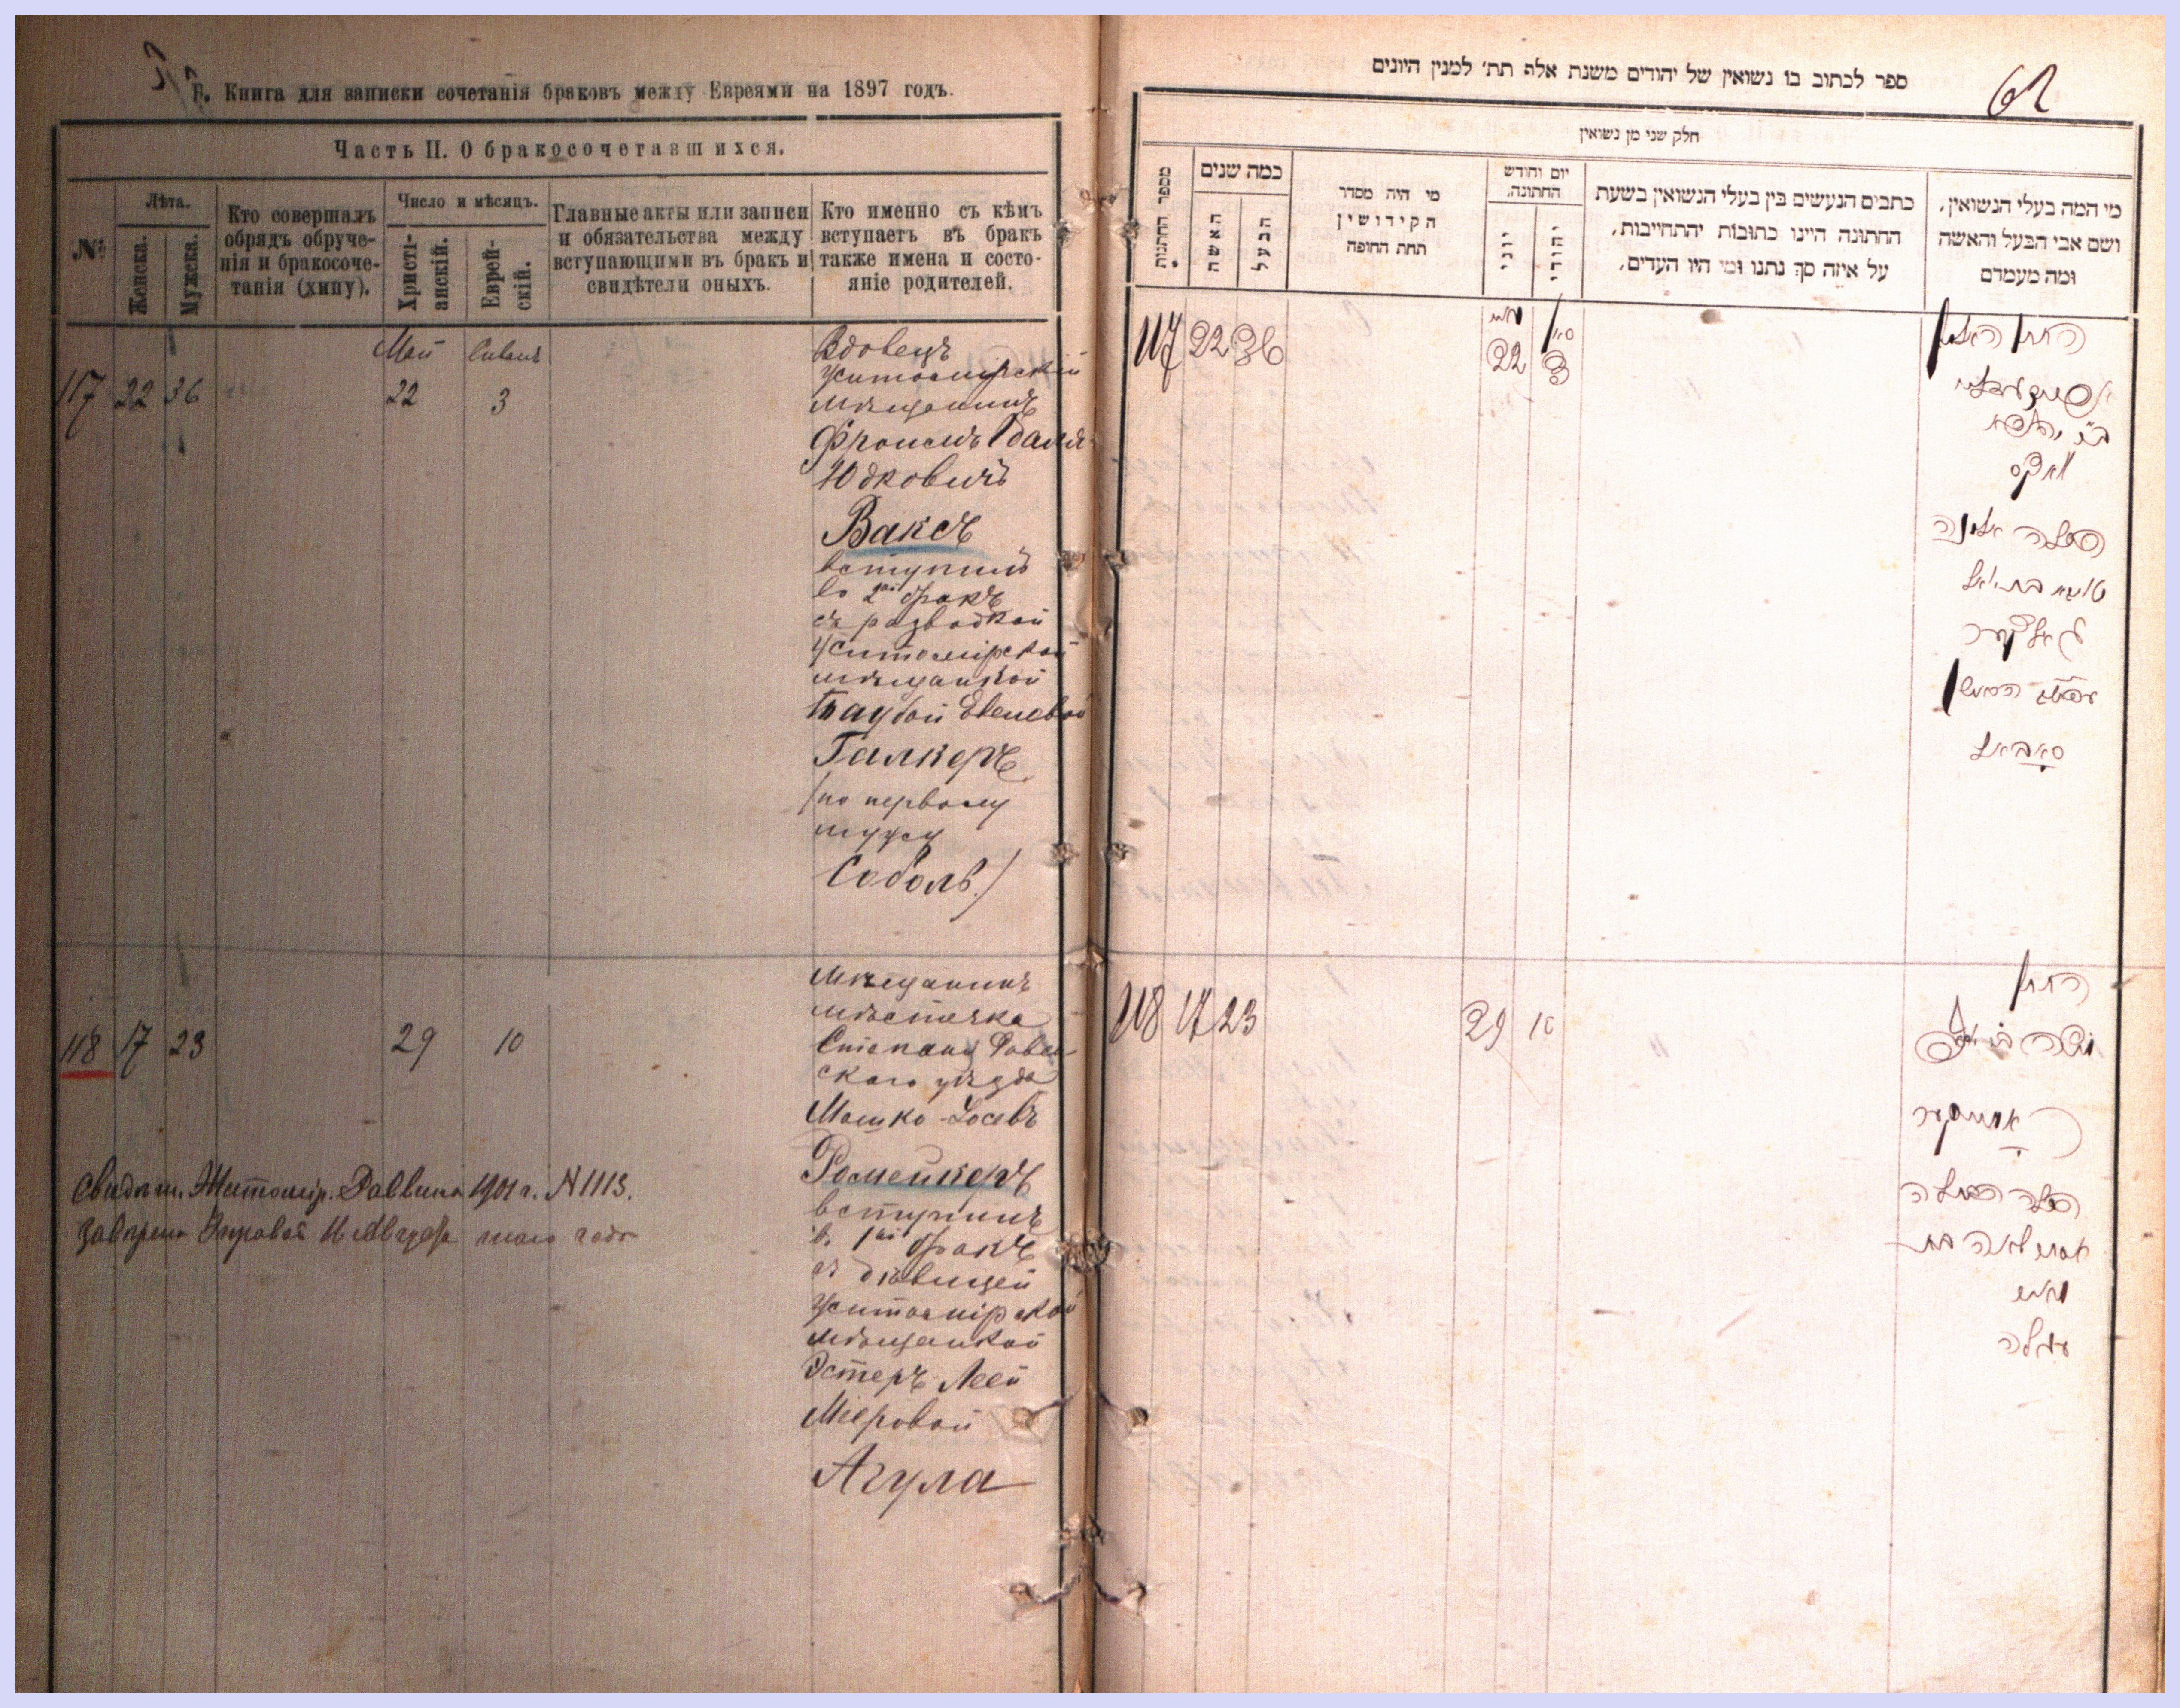 Б. Книга для записки сочетанія браковъ между Евреями на 1897 годъ.
Часть II. О бракосочетавшихся.
№
Лѣта.
Женска.
Мужска.
Кто совершалъ
обрядъ обруче-
нія и бракосоче-
танія (хипу).
Число и мѣсяцъ.
Христі-
анскій.
Еврей-
скій.
Главные акты или записи
и обязательства между
вступающими въ бракъ и
свидѣтели оныхъ.
Кто именно съ кѣмъ
вступаетъ въ бракъ
также имена и состо-
яніе родителей.
Май Сиванъ
117 22 36 22 3
Вдовецъ
Житомирскій
мѣщанинъ
Фроимъ
Юдковичъ
Ваксъ
вступилъ
во 2ой бракъ
съ разводкой
Житомірской
мѣщанкой
Таубой
Галкеръ
(по первому
мужу
Соболь)
118 17 23 29 10
Мѣщанинъ
мѣстечка
Степаня Ровен
скаго уѣзда
Мошко-Іосевъ
Ромейкеръ
вступилъ
въ 1ый бракъ
съ дѣвицей
Житомірской
мѣщанкой
Эстеръ Леей
Мееровой
Агула
Свидѣт. Житомір. Раввина 1901 г. N 1113.
того года
ספר לכתוב בו נשואין של יהודים משנת אלף תת׳ למנין היונים
62
חלק שני מן נשואין
מספר החתונות
כמה שנים
האשה
הבעל
מי היה מסדר
הקידושין
תחת החופה
יום וחודש
החתונה.
יוני
יהודי
כתבים הנעשים בין בעלי הנשואין בשעת
החתונה היינו כתובות יהתחייבות,
על איזה סך נתנו ומי היו העדים,
מי המה בעלי הנשואין,
ושם אבי הבעל והאשה
ומה מעמדם
117 22 36 22 3
החתן האלמן
וואקס
הכלה
גאלקער
סאבאל
118 17 23 29 10
החתן
משה בן יוסף
הכלה הבתולה
אסתר לאה בת
מאיר